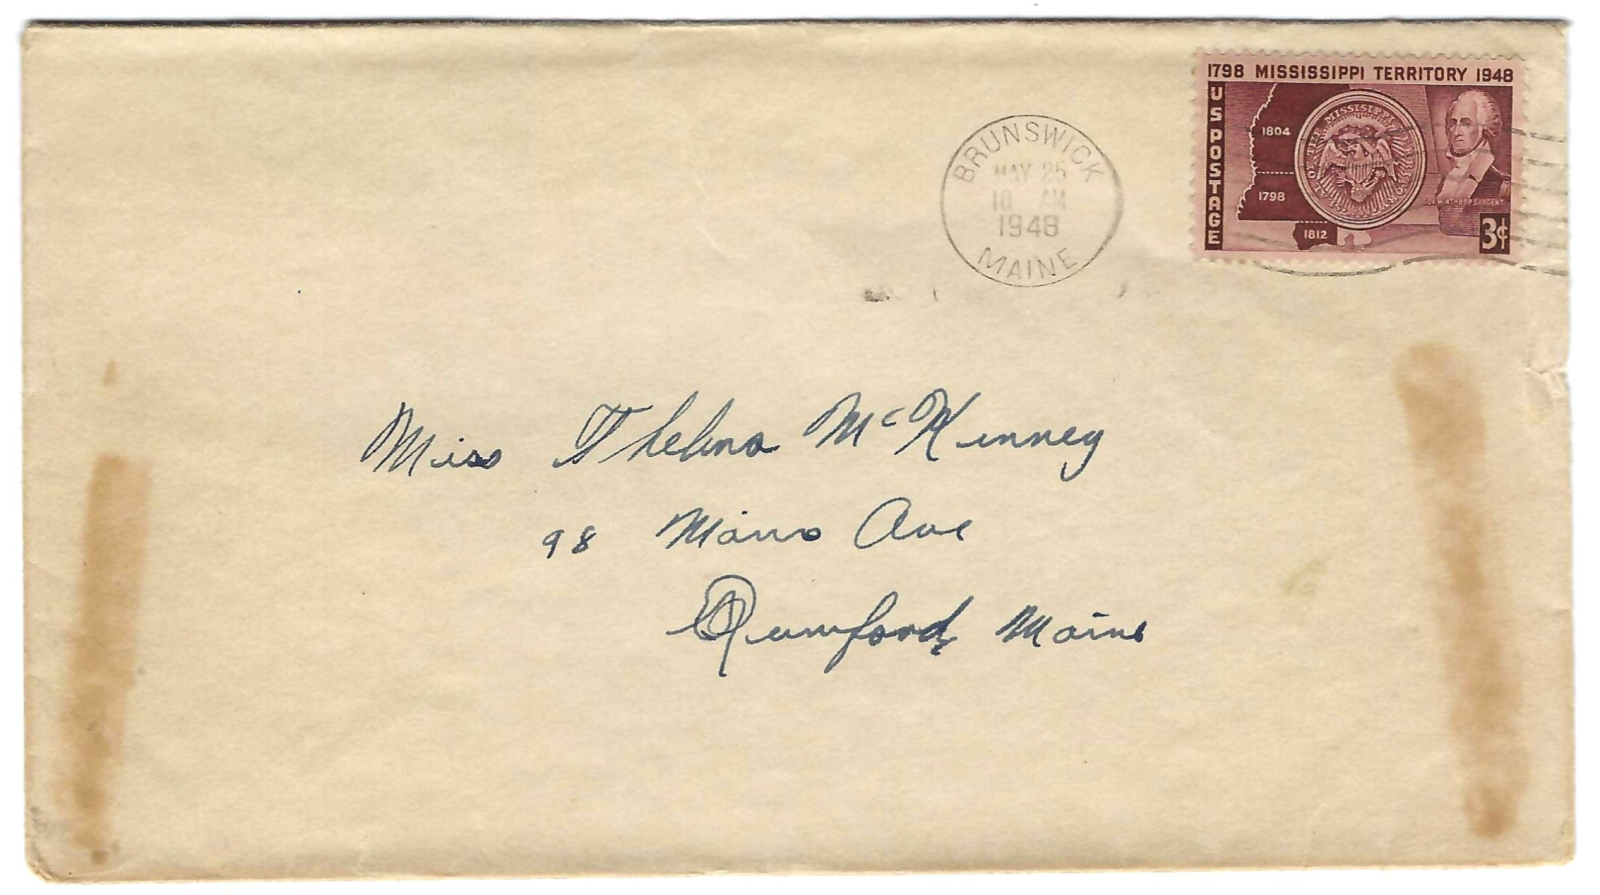 1798 MISSISSIPPI TERRITORY 1948
US POSTAGE
1804
1798
1812
3¢
BRUNSWICK
MAY 25
10 AM
1948
MAINE
Miss Thelma McKinney
98 Maine Ave
Rumford, Maine